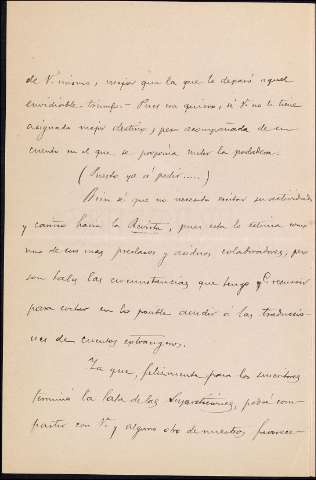 de V. mismo, mejor que la que le deparó aquel
envidiable triunfo.- Pues esa quiero, si V. no le tiene
asignado mejor destino, y esa acompañada de un
cuento en el que se proponía meter la podadera.
(Puesto ya á pedir.....)
Bien sé que no necesito excitar su actividad
y cariño hacia la Revista, pues esta le estima como
uno de sus mas preclaros y asiduos colaboradores, pero
son tales las circunstancias que tengo que recurrir
para evitar en lo posible acudir á las traduccio-
nes de cuentos extrangeros.
Ya que, felizmente para los suscritores
terminó la lata de las Supersticiones, podré com-
partir con V. y alguno otro de nuestros favorece-